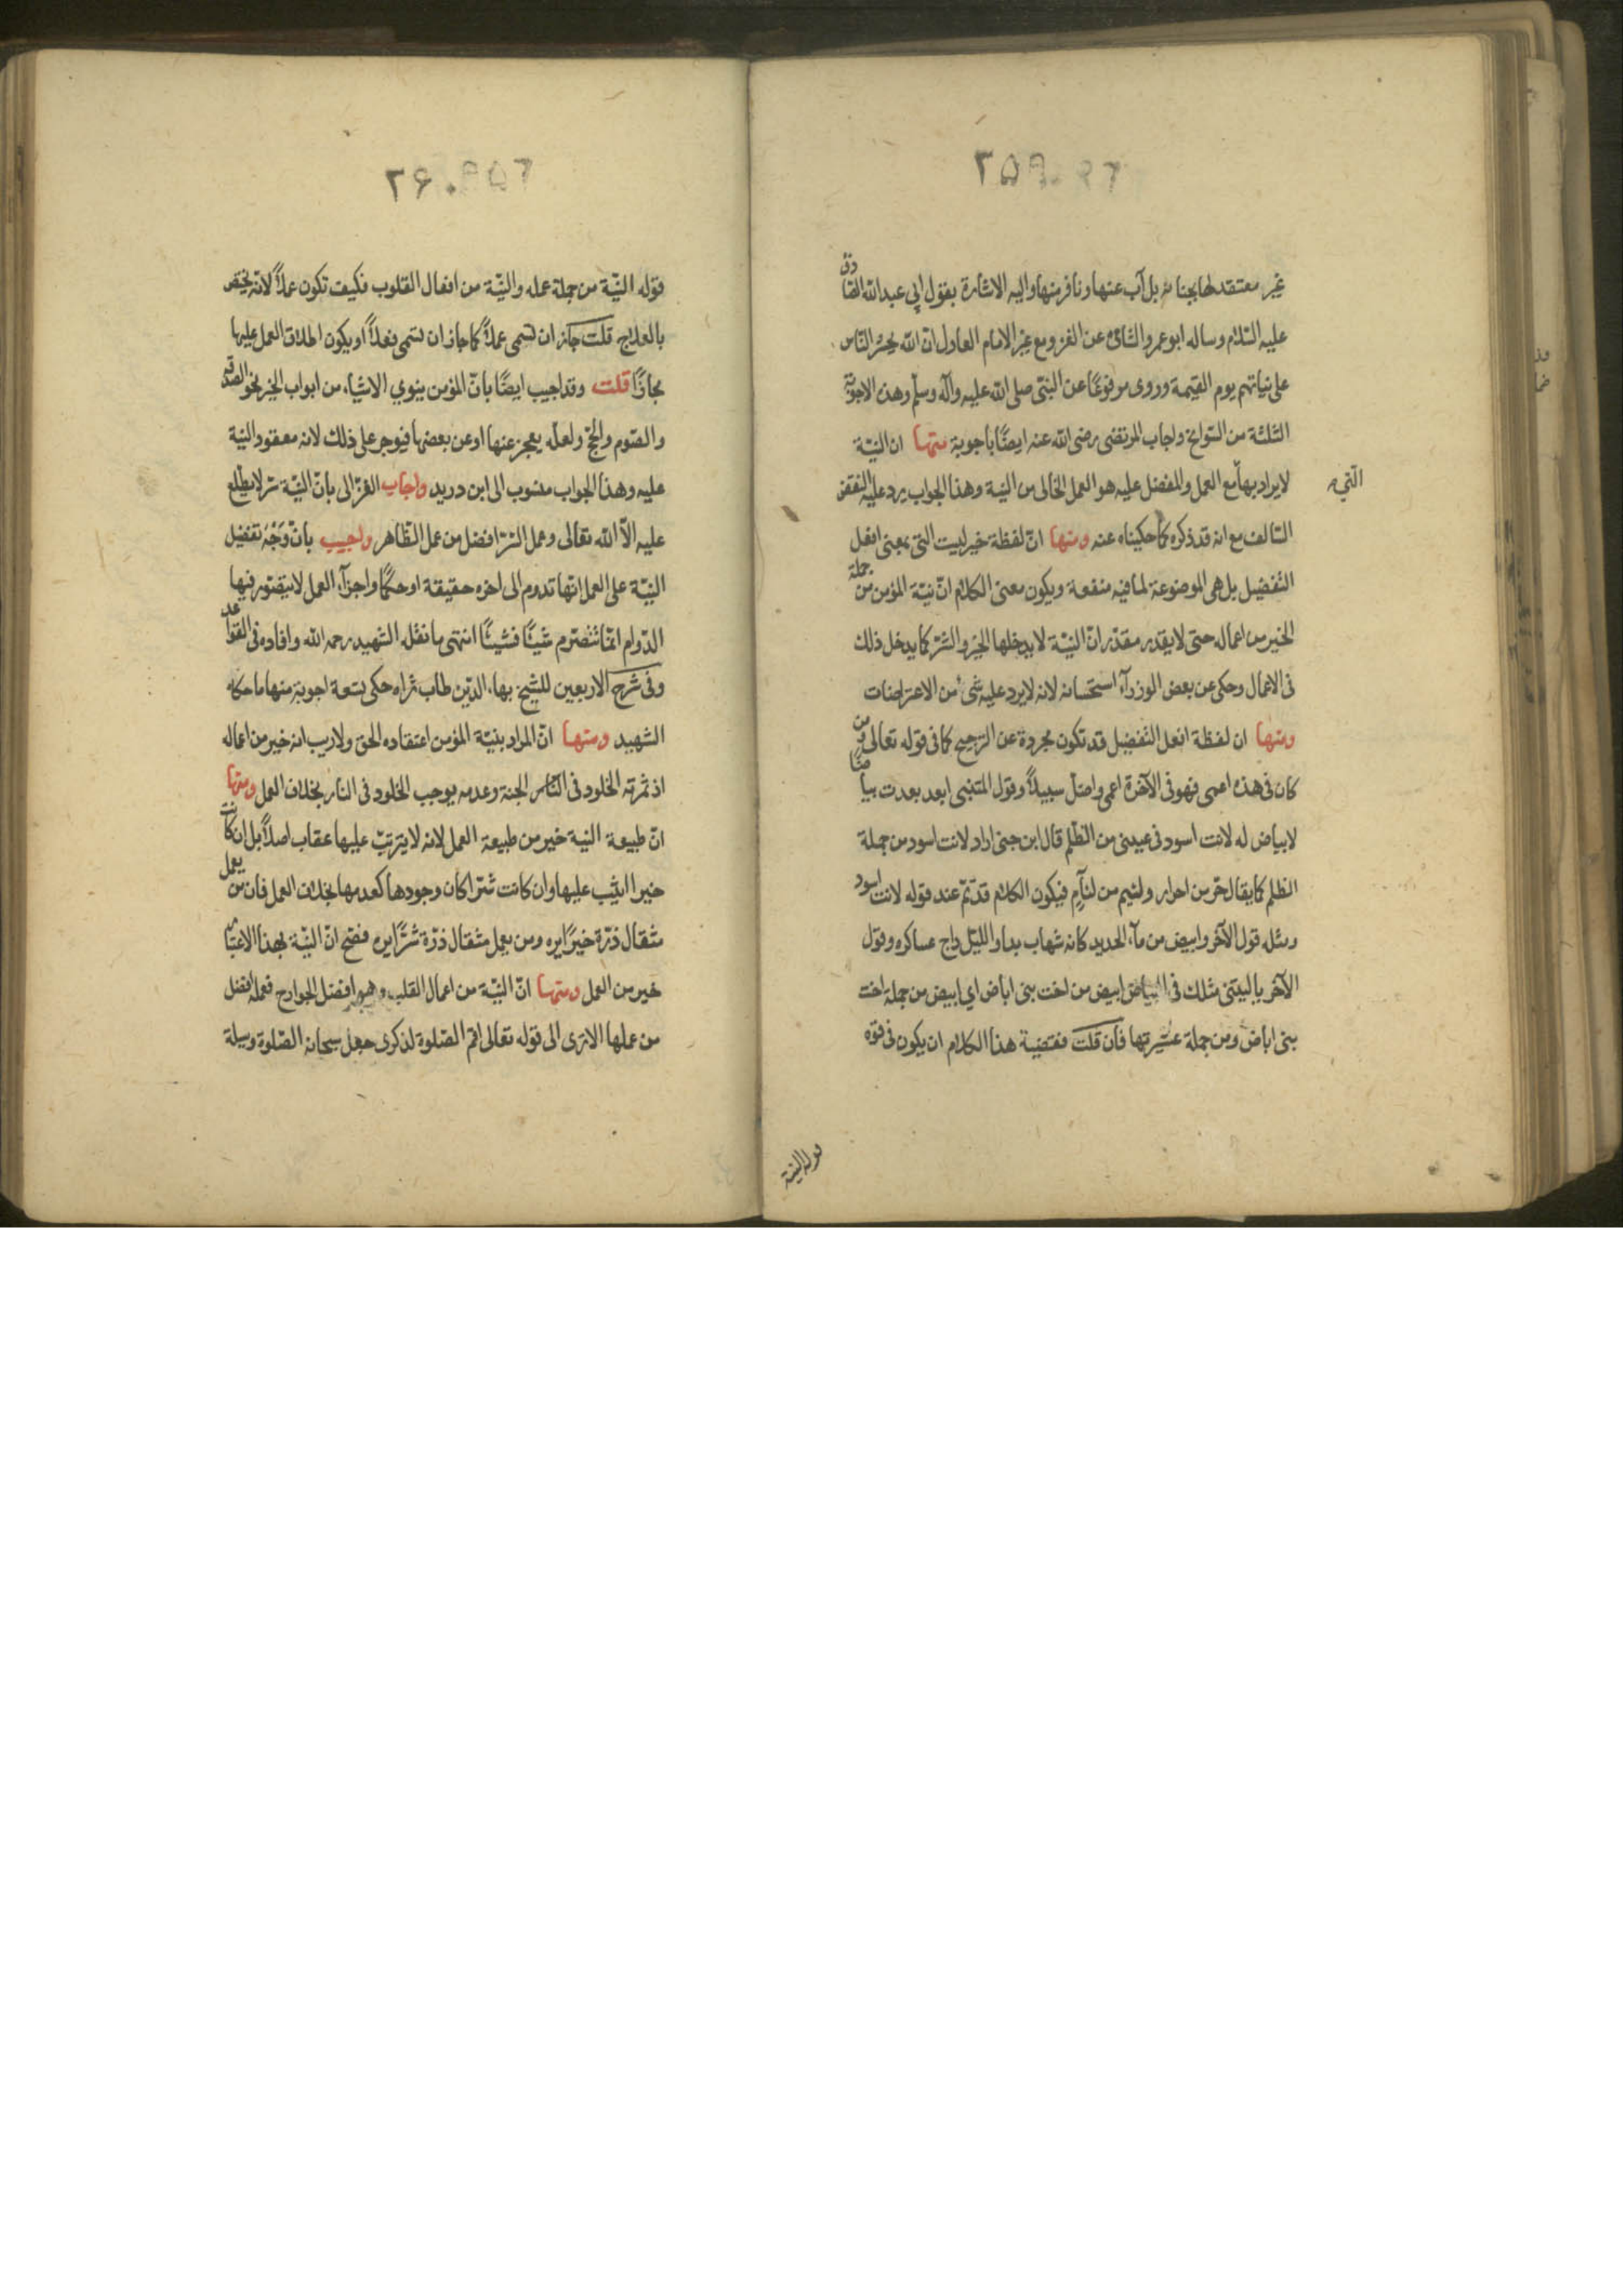 ٢٥٩
غير معتقد لها بجنانه بل آب عنها ونافر منها واليه الاشارة بقول ابي عبد الله الصادق
عليه السّلام وساله ابو عمرو الشامي عن الغزو مع غير الامام العادل انّ الله يحشر النّاس
على نياتهم يوم القيمة وروى مرفوعًا عن النبّي صلى الله عليه وآله وسلّم وهذه الاجوبة
الثلثة من السّوانح واجاب المرتضى رضى الله عنه ايضًا باجوبة منها ان النيّة
لا يراد بها مع العمل والمفضل عليه هو العمل الخالى من النية وهذا الجواب يرد عليه النقض
السّالف مع انه قد ذكره كما حكيناه عنه ومنها انّ لفظة خير ليست التى بمعنى افعل
التفضيل بل هى الموضوعة لما فيه منفعة ويكون معنى الكلام انّ نيّة المؤمن من جملة
الخير من اعماله حتى لا يقدر مقدّر انّ النيّة لا يدخلها الخير والشّر كما يدخل ذلك
فى الاعمال وحكى عن بعض الوزرآء استحسانه لانه لا يرد عليه شىء من الاعتراضات
ومنها ان لفظة افعل التّفضيل قد تكون مجردة عن الترجيح كما فى قوله تعالى ومن
كان فى هذه اعمى فهو فى الآخرة اعمى واضلّ سبيلاً وقول المتنبى ابعد بعدت بياضًا
لا بياض له لانت اسود فى عينى من الظّلم قال ابن جنى اراد لانت اسود من جملة
الظلم كما يقال حرّ من احرار ولئيم من لئآم فيكون الكلام قد تمّ عند قوله لانت اسود
ومثله قول الآخر وابيض من مآء الحديد كانه شهاب بدا والليّل داج عساكره وقول
الآخر ياليتنى مثلك فى البياض ابيض من اخت بنى اباض اي ابيض من جملة اخت
بنى اباض ومن جملة عشيرتها فان قلت فقضية هذا الكلام ان يكون فى قوة
التي
قوله النية
٢۶٠
قوله النيّة من جملة عمله والنيّة من افعال القلوب فكيف تكون عملاً لانه يختص
بالعلاج قلت جاز ان تسمى عملاً كما جاز ان تسمى فعلاً او يكون اطلاق العمل عليها
مجازًا قلت وقد اجيب ايضًا بانّ المؤمن ينوي الاشياء من ابواب الخير نحو الصدقة
والصّوم والحجّ ولعلّه يعجز عنها او عن بعضها فيوجر على ذلك لانه معقود النية
عليه وهذا الجواب منسوب الى ابن دريد واجاب الغزّالى بانّ النيّة سّر لا يطّلع
عليه الّا الله تعالى وعمل السّر افضل من عمل الظّاهر واجيب بانّ وَجْهَ تفضيل
النيّة على العمل انّها تدوم الى اخره حقيقة او حكمًا واجزآء العمل لا يتصّور فيها
الدّوام انمّا تتصّرم شيئًا فشيئًا انتهى ما نقله الشّهيد رحمه الله وافاده فى القواعد
وفى شرح الاربعين للشّيخ بهاء الدّين طاب ثراه حكى تسعة اجوبة منها ما حكاه
الشهيد ومنها انّ المراد بنيّة المؤمن اعتقاده الحق ولا ريب انه خير من اعماله
اذ ثمرته الخلود فى الجنة وعدمه يوجب الخلود فى النار بخلاف العمل ومنها
انّ طبيعة النية خير من طبيعة العمل لانه لا يترتبّ عليها عقاب اصلاً بل ان كانت
خيرا اثيب عليها وان كانت شّرا كان وجودها كعدمها بخلاف العمل فان من يعمل
مثقال ذرّة خيرًا يره ومن يعمل مثقال ذرّة شرًّا يره فصّح انّ النيّة بهذا الاعتبار
خير من العمل ومنها انّ النيّة من اعمال القلب وهو افضل الجوارح فعمله افضل
من عملها الا ترى الى قوله تعالى اقم الصّلوة لذكرى جعل سبحانه الصّلوة وسيلة